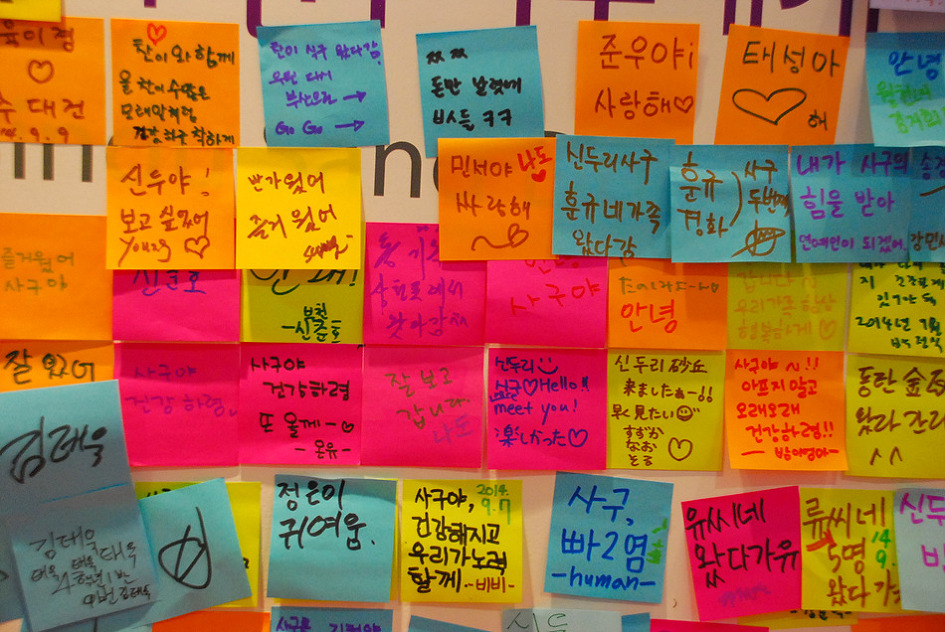 수 대전
9.9
찬이와 함께
건강하고 착하게
찬이 식구 왔다감.
부산으로 →
GO GO →
ㅉㅉ
돈만 날렸네
비스들 ㅋㅋ
준우야i
사랑해♡
태성아
해
안녕
신우야!
보고 싶었어
young ♡
반가웠어
즐거웠어
민서야
나도
싸랑해
신두리사구
훈규네가족
왔다감
훈규
경화
사구
두번째
내가 사구의
힘을 받아
연예인이 되겠어.
즐거웠어
사구야
신준호
안돼!
부천
-신준호
찾아감
사구야
안녕
우리가족 항상
행복하게 ♡
있기야 돼
2014년
잘 있어
사구야
건강하렴.
사구야
건강하렴
또 올께~♡
-온유-
잘 보고
갑니다.
나도
신두리
사구♡Hello!!
nice
meet you!
楽しかった♡
신두리 砂丘
来ましたねー!!
早く見たい
すずか
なお
사구야~!!
아프지 말고
오래오래
건강하렴!!
동탄 金
왔다 간다
^^
김태욱
김태욱
태욱
4학년 1반
정은이
귀여움.
사구야,
2014.
9.7
건강해지고
우리가노력
할께.-비비-
사구,
빠2염
-human-
유씨네
왔다가유
류씨네
5명
'14
9.
왔다가
신두